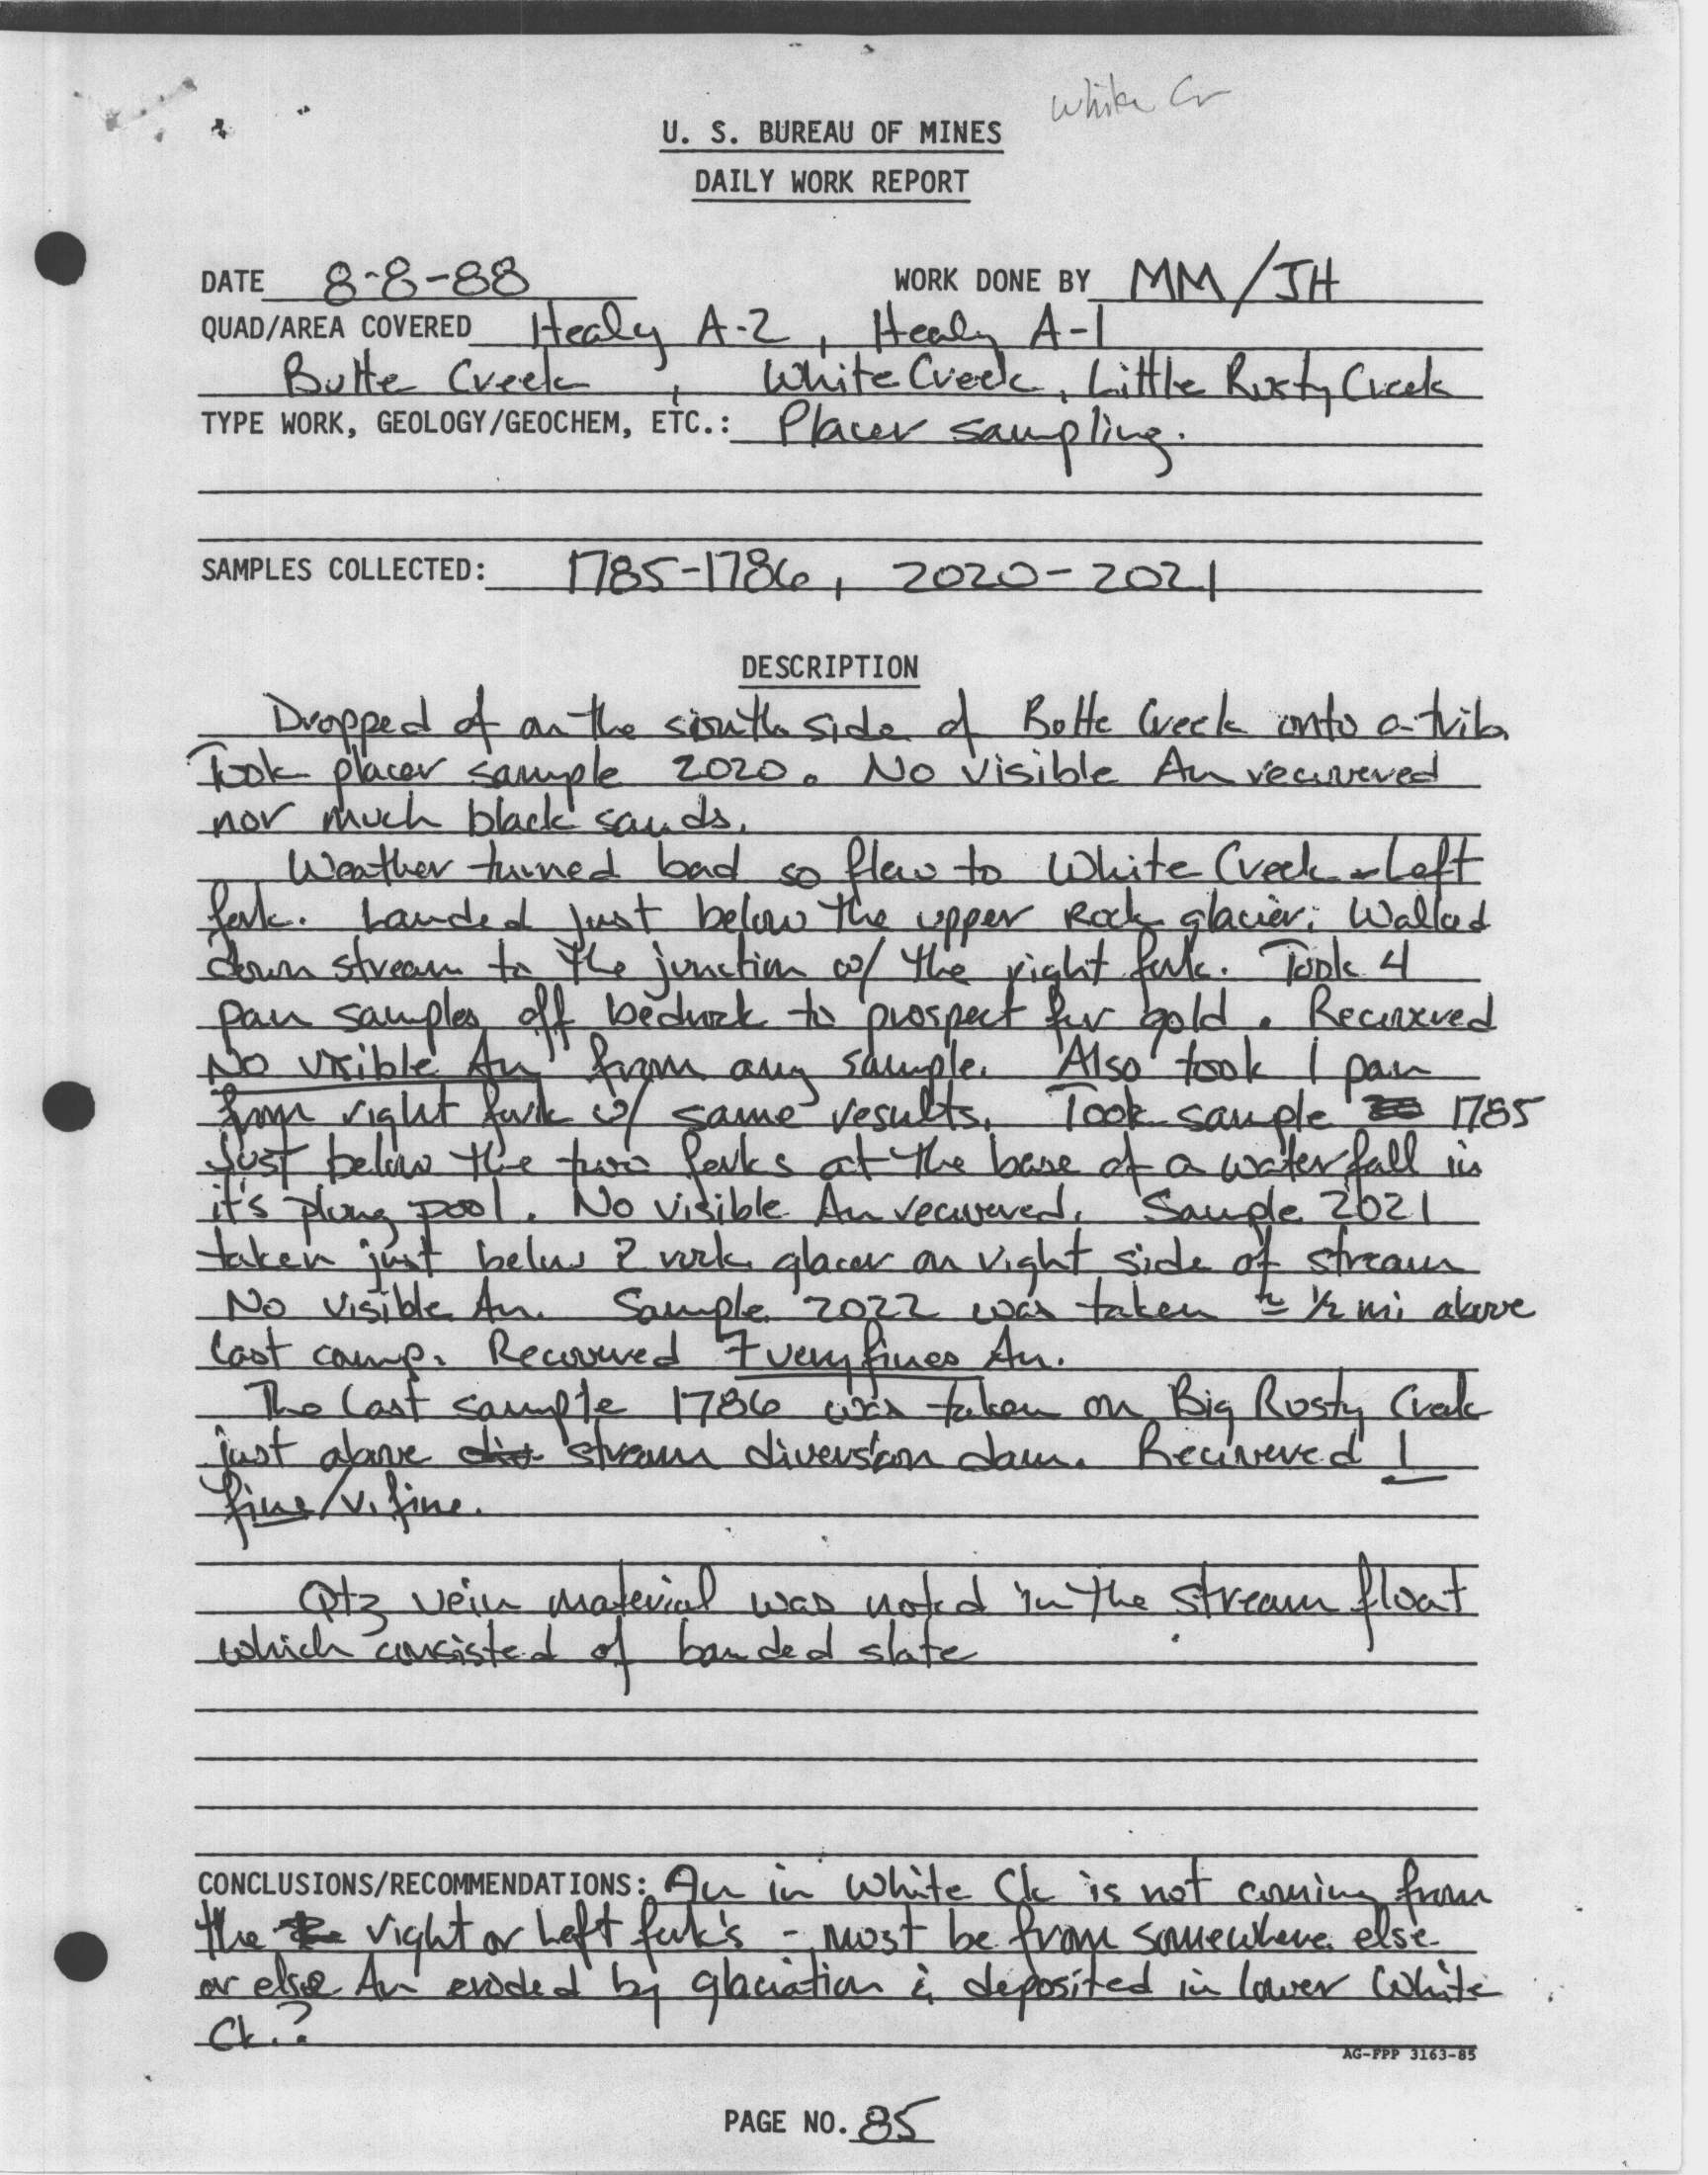 White Cr
U. S. BUREAU OF MINES
DAILY WORK REPORT
DATE 8-8-88 WORK DONE BY MM/JH
QUAD/AREA COVERED Healy A-2, Healy A-1
Butte Creek, White Creek, Little Rusty Creek
TYPE WORK, GEOLOGY/GEOCHEM, ETC.: Placer sampling.
SAMPLES COLLECTED: 1785-1786, 2020-2021
DESCRIPTION
Dropped of on the south side of Butte Creek onto a trib.
Took placer sample 2020. No visible Au recovered
nor much black sands.
Weather turned bad so flew to White Creek - Left
fork. Landed just below the upper Rock glacier. Walked
down stream to the junction w/ the right fork. Took 4
pan samples off bedrock to prospect for gold. Recovered
No visible Au from any sample. Also took 1 pan
from right fork w/ same results. Took sample 1785
Just below the two forks at the base of a waterfall in
it's plung pool. No visible Au recovered. Sample 2021
taken just below 2 rock glacer on right side of stream
No visible Au. Sample 2022 was taken ≈ 1/2 mi above
last camp. Recovered 7 very fines Au.
The last sample 1786 was taken on Big Rusty Creek
just above stream diversion dam. Recovered 1
fine/v. fine.
Qtz vein material was noted in the stream float
which consisted of banded slate
CONCLUSIONS/RECOMMENDATIONS: Au in White Ck is not coming from
the right or Left fork's - must be from somewhere else
or else Au eroded by glaciation & deposited in lower White
Ck.?
AG-FPP 3163-85
PAGE NO. 85